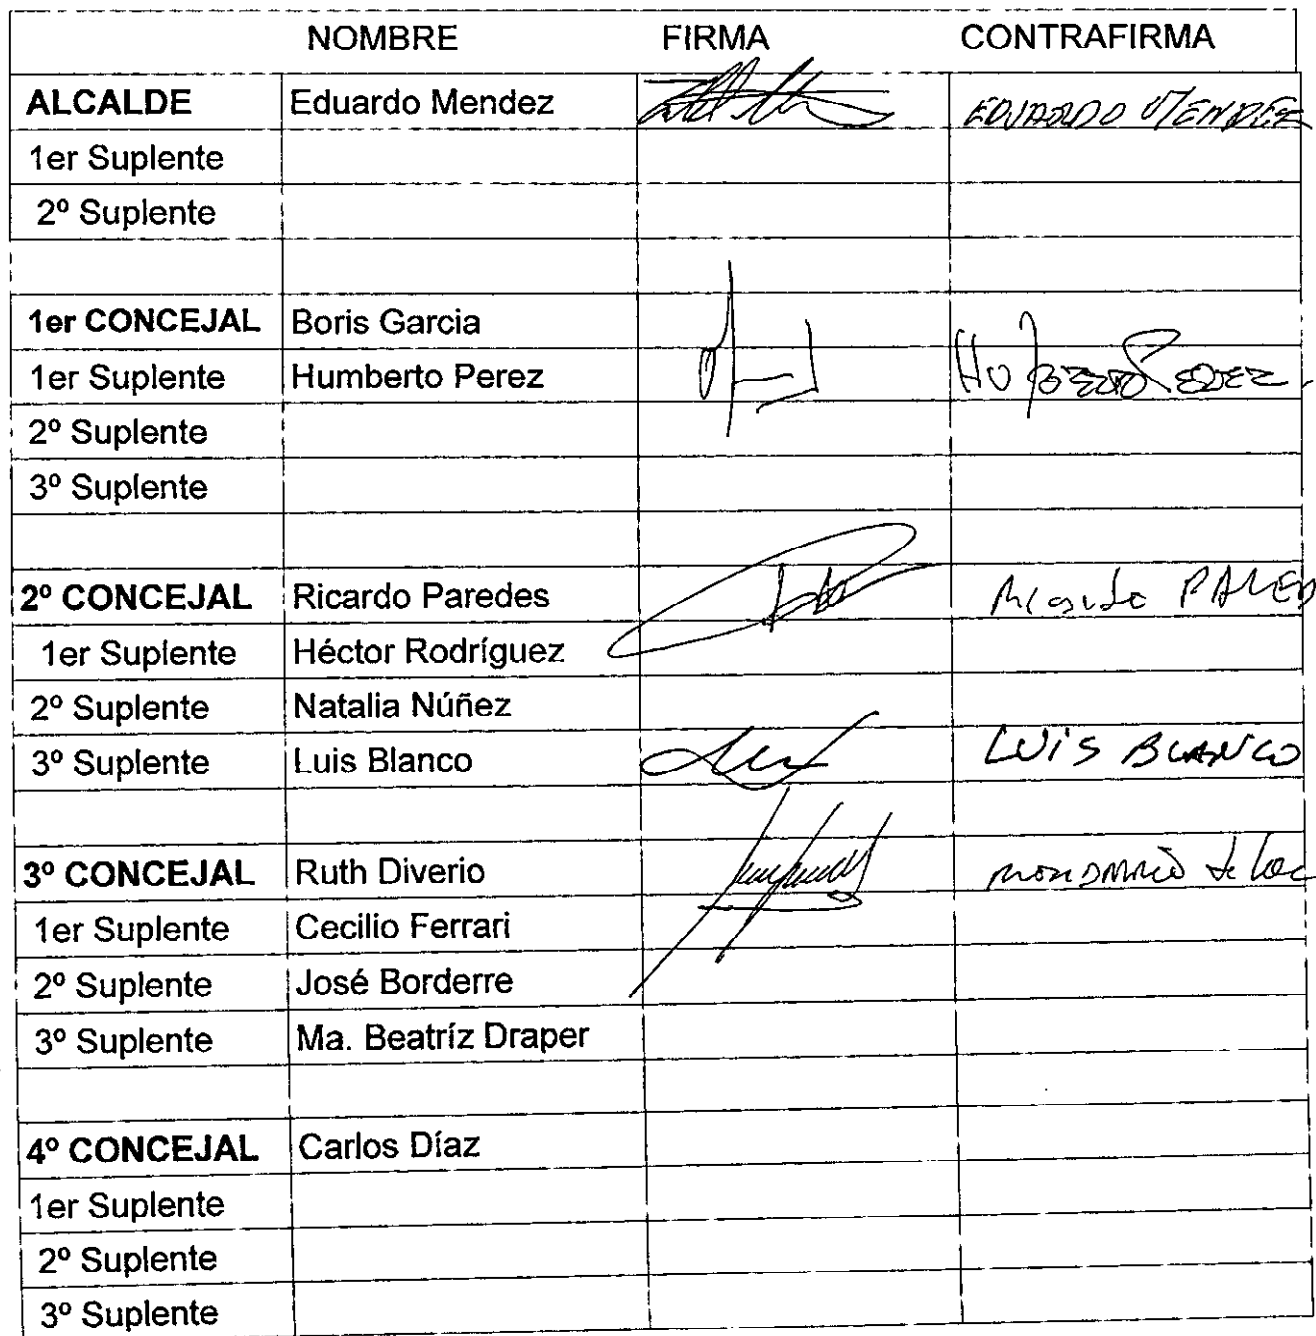 NOMBRE FIRMA CONTRAFIRMA
ALCALDE Eduardo Mendez EDUARDO MENDEZ
1er Suplente
2º Suplente
1er CONCEJAL Boris Garcia
1er Suplente Humberto Perez
2º Suplente
3º Suplente
2º CONCEJAL Ricardo Paredes
1er Suplente Héctor Rodríguez
2º Suplente Natalia Núñez
3º Suplente Luis Blanco LUIS BLANCO
3º CONCEJAL Ruth Diverio
1er Suplente Cecilio Ferrari
2º Suplente José Borderre
3º Suplente Ma. Beatríz Draper
4º CONCEJAL Carlos Díaz
1er Suplente
2º Suplente
3º Suplente